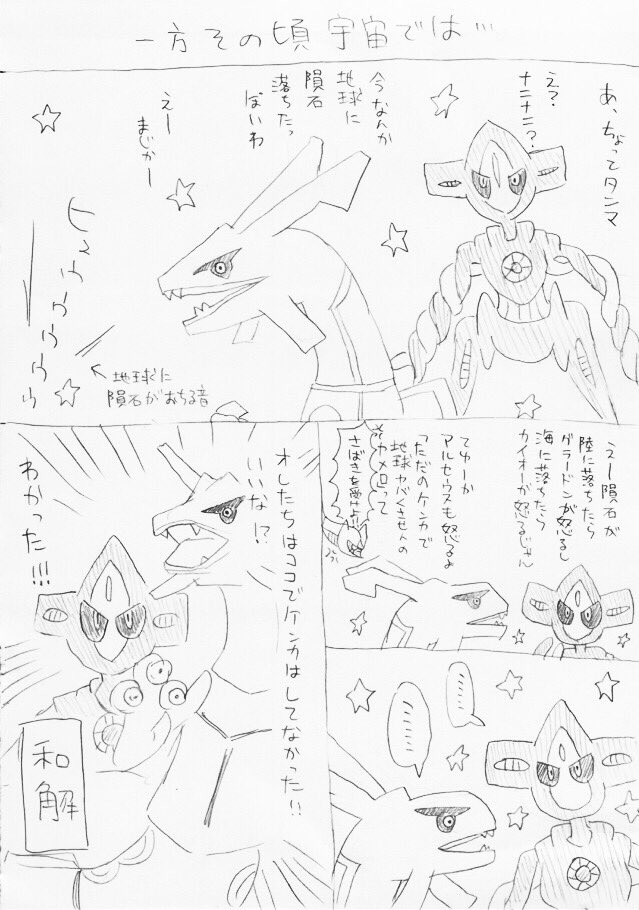 一方その頃宇宙では…
あ、ちょってタンマ
え?
ナニナニ?
今なんか
地球に
隕石
落ちたっ
ぽいわ
えー
まじかー
ヒュウウウウウゥ
←地球に
隕石がおちる音
えー隕石が
陸に落ちたら
グラードンが怒るし
海に落ちたら
カイオーが怒るじゃん
てゆーか
アルセウスも怒るよ
「ただのケンカで
地球ヤバくさせんの
ダメ절って
さばきを受せよ!!
…………
…………
オレたちはココでケンカはしてなかった!!
いいな!?
わかった!!!
和解